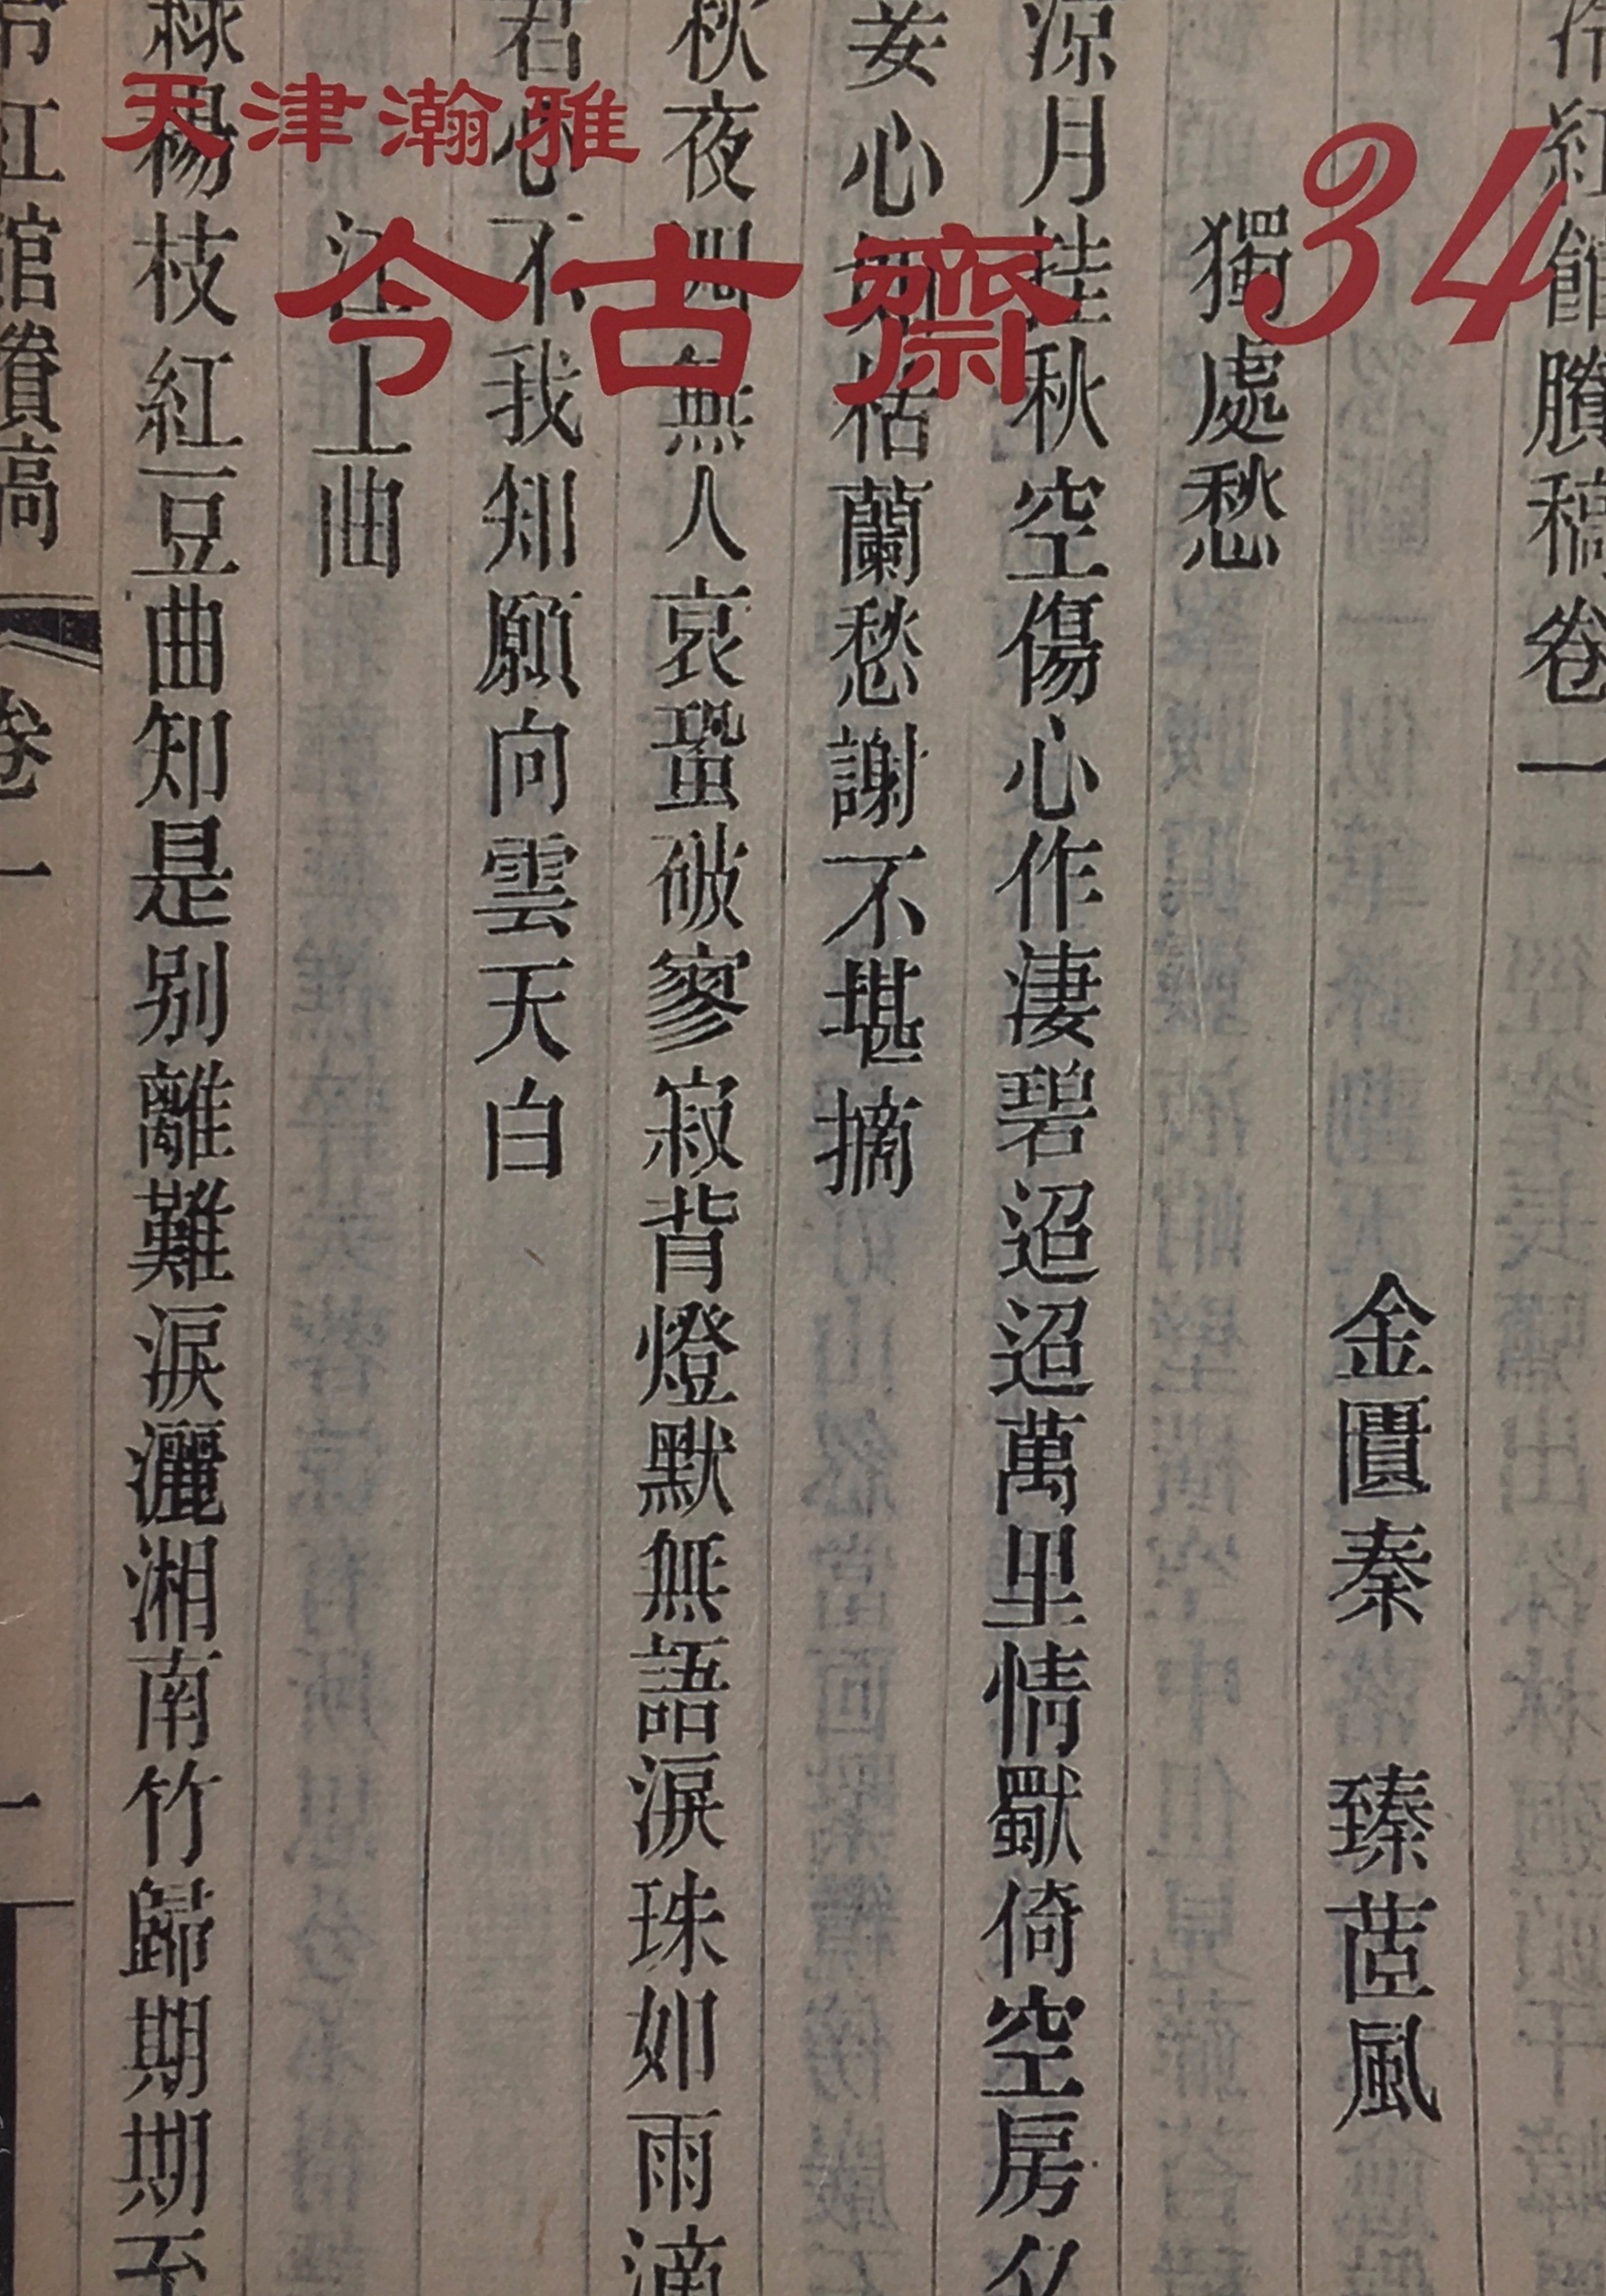 天津瀚雅
今古齋
34
冷紅館賸稿卷一
金匱秦 臻茝風
獨處愁
涼月挂秋空傷心作淒碧迢迢萬里情獨倚空房夕
妾心如枯蘭愁謝不堪摘
秋夜無人哀蛩破寥寂背燈默無語淚珠如雨滴
君心不我知願向雲天白
江上曲
綠楊枝紅豆曲知是别離難淚灑湘南竹歸期期
冷紅館賸稿 卷一 一